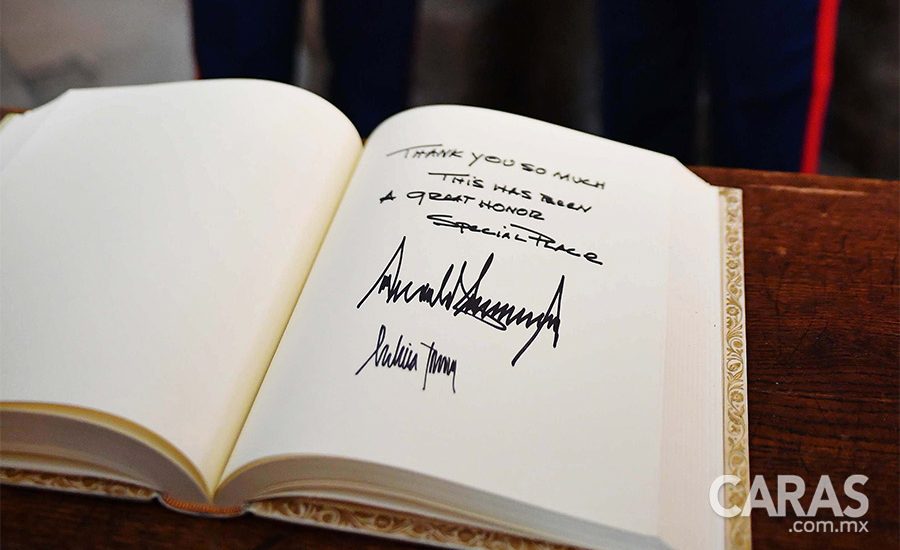 THANK YOU SO MUCH
THIS HAS BEEN
A GREAT HONOR
SPECIAL PLACE
Donald Trump
Melania Trump
CARAS
.com.mx